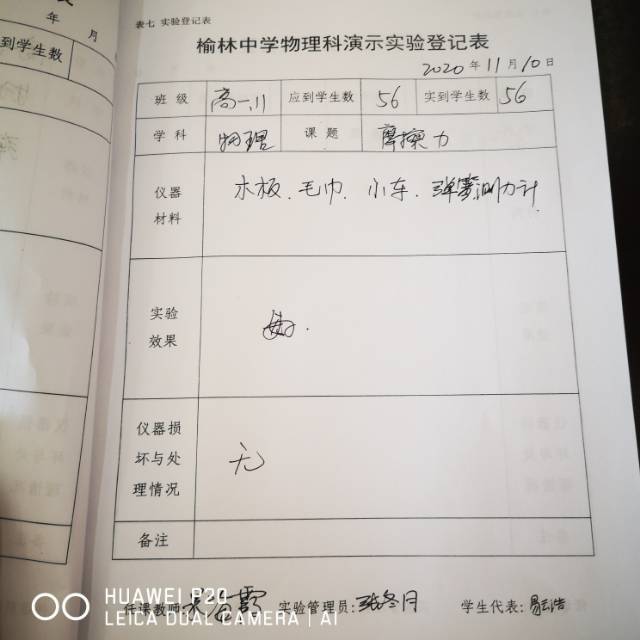 年 月
到学生数
表七 实验登记表
榆林中学物理科演示实验登记表
2020年11月10日
班 级 高一.11 应到学生数 56 实到学生数 56
学 科 物理 课 题 摩擦力
仪器
材料
木板、毛巾、小车、弹簧测力计
实验
效果
仪器损
坏与处
理情况
无
备注
任课教师 实验管理员: 学生代表:
HUAWEI P20
LEICA DUAL CAMERA | AI